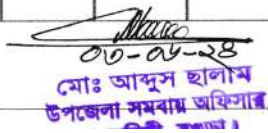 ০৩-০৬-২৪
মোঃ আব্দুস ছালাম
উপজেলা সমবায় অফিসার